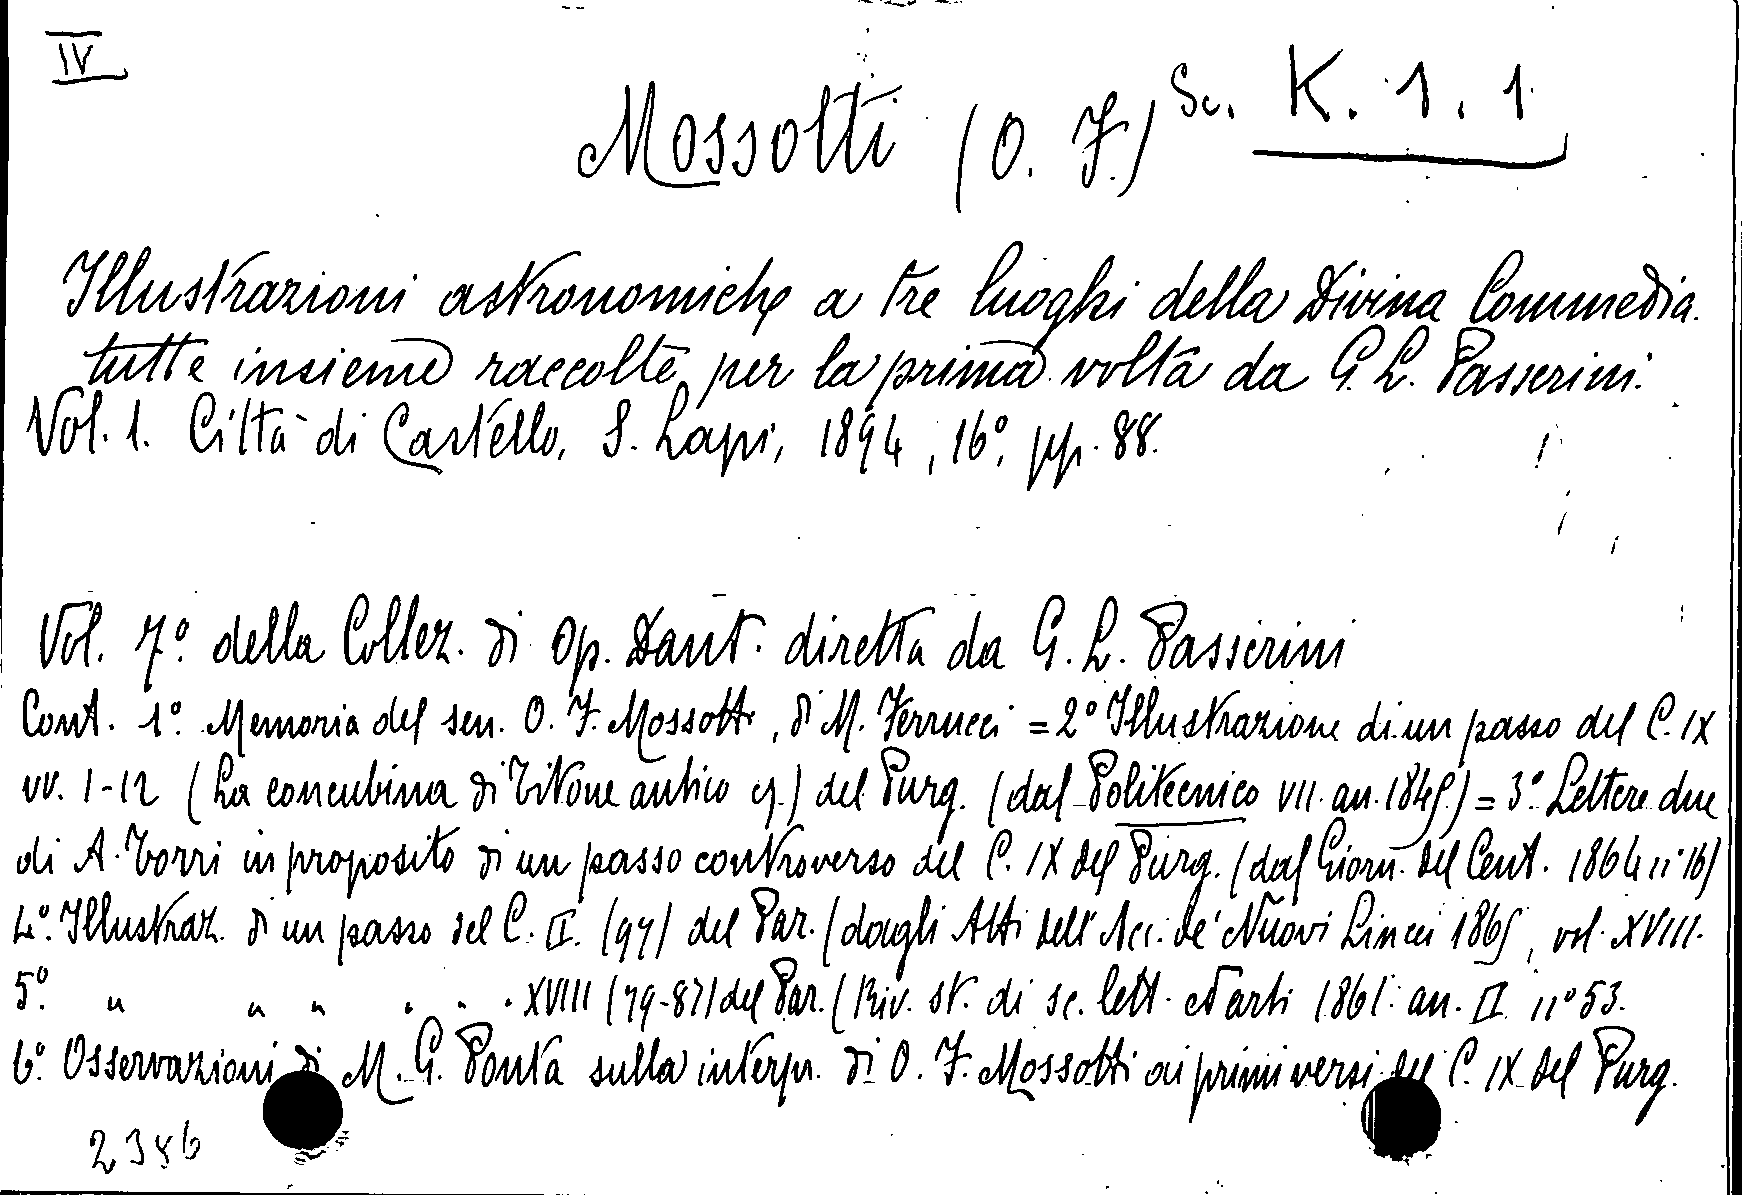 IV
Sc. K. 1. 1
Mossotti (O. F.)
Illustrazioni astronomiche a tre luoghi della Divina Commedia
tutte insieme raccolte per la prima volta da G. L. Passerini.
Vol. 1. Città di Castello, S. Lapi, 1894, 16°, pp. 88.
Vol. 7° della Collez. di Op. Dant. diretta da G. L. Passerini
Cont. 1° Memoria del sen. O. F. Mossotti, di M. Ferrucci = 2° Illustrazione di un passo del C. IX
vv. 1-12 (La concubina di Titone antico) del Purg. (dal Politecnico VII. an. ) = 3° Lettere due
di A. Torri in proposito di un passo controverso del C. IX del Purg. (dal Giorn. del Cent. 1864 n° 16)
4° Illustraz. di un passo del C. II. del Par. (dagli Atti dell' Acc. de' Nuovi Lincei 1865, vol. XVIII.
5° " " " " " " XVIII (79-87) del Par. (Riv. st. di sc. lett. ed arti 1861. an. II n° 53.
6° Osservazioni di M. G. Ponta sulla interpr. di O. F. Mossotti ai primi versi del C. IX del Purg.